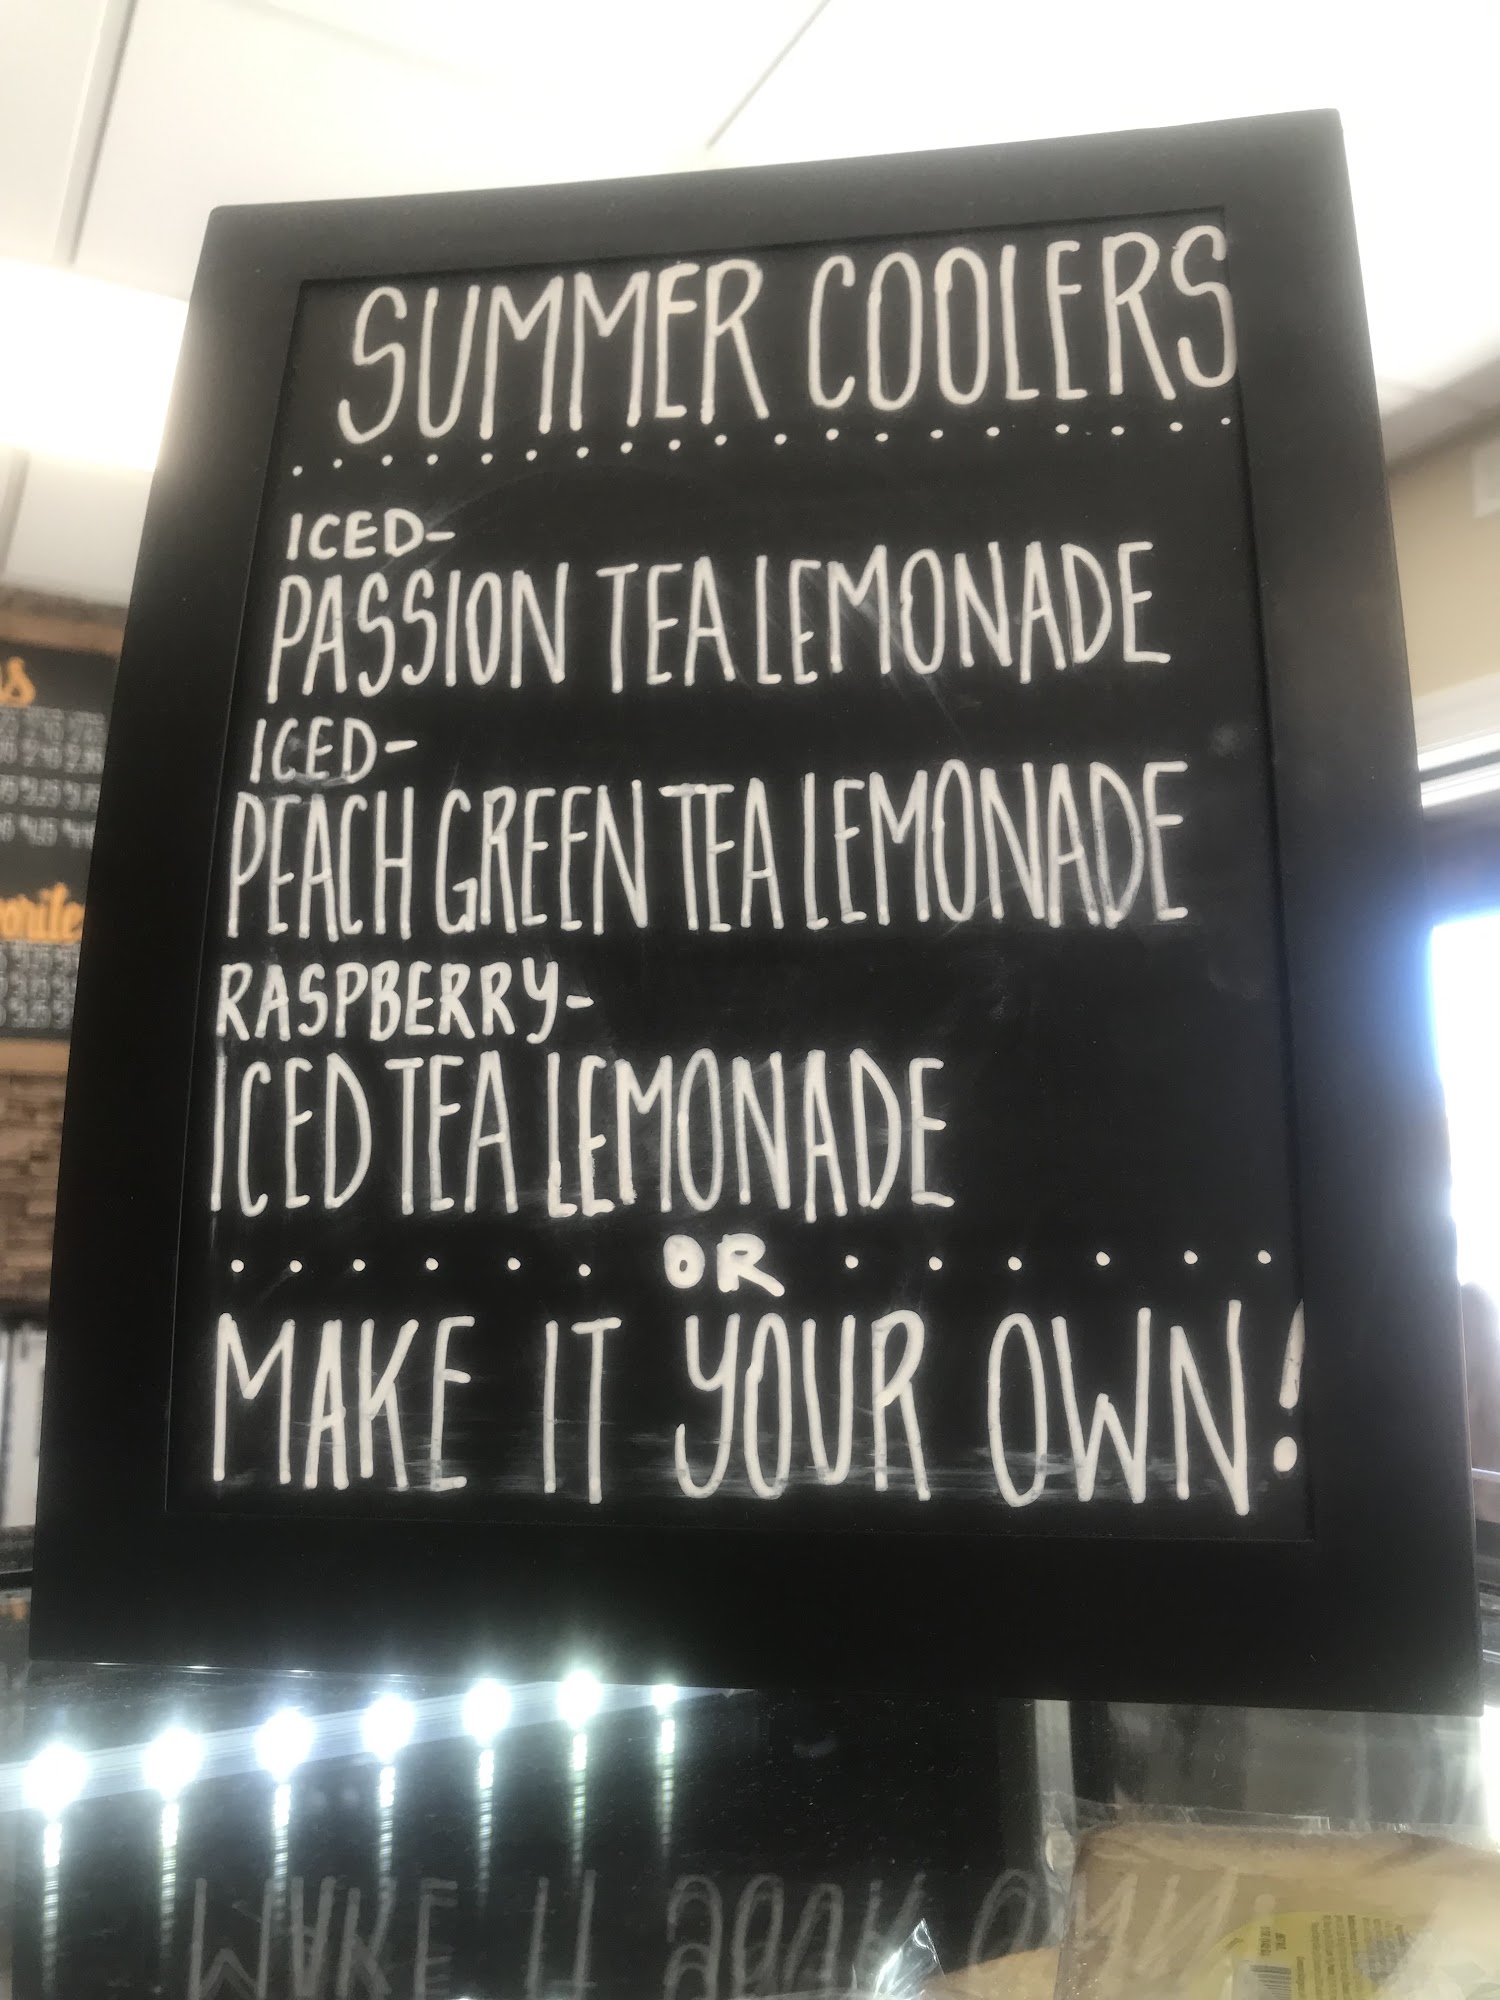 SUMMER COOLERS
ICED-
PASSION TEA LEMONADE
ICED-
PEACH GREEN TEA LEMONADE
RASPBERRY-
ICED TEA LEMONADE
OR
MAKE IT YOUR OWN!